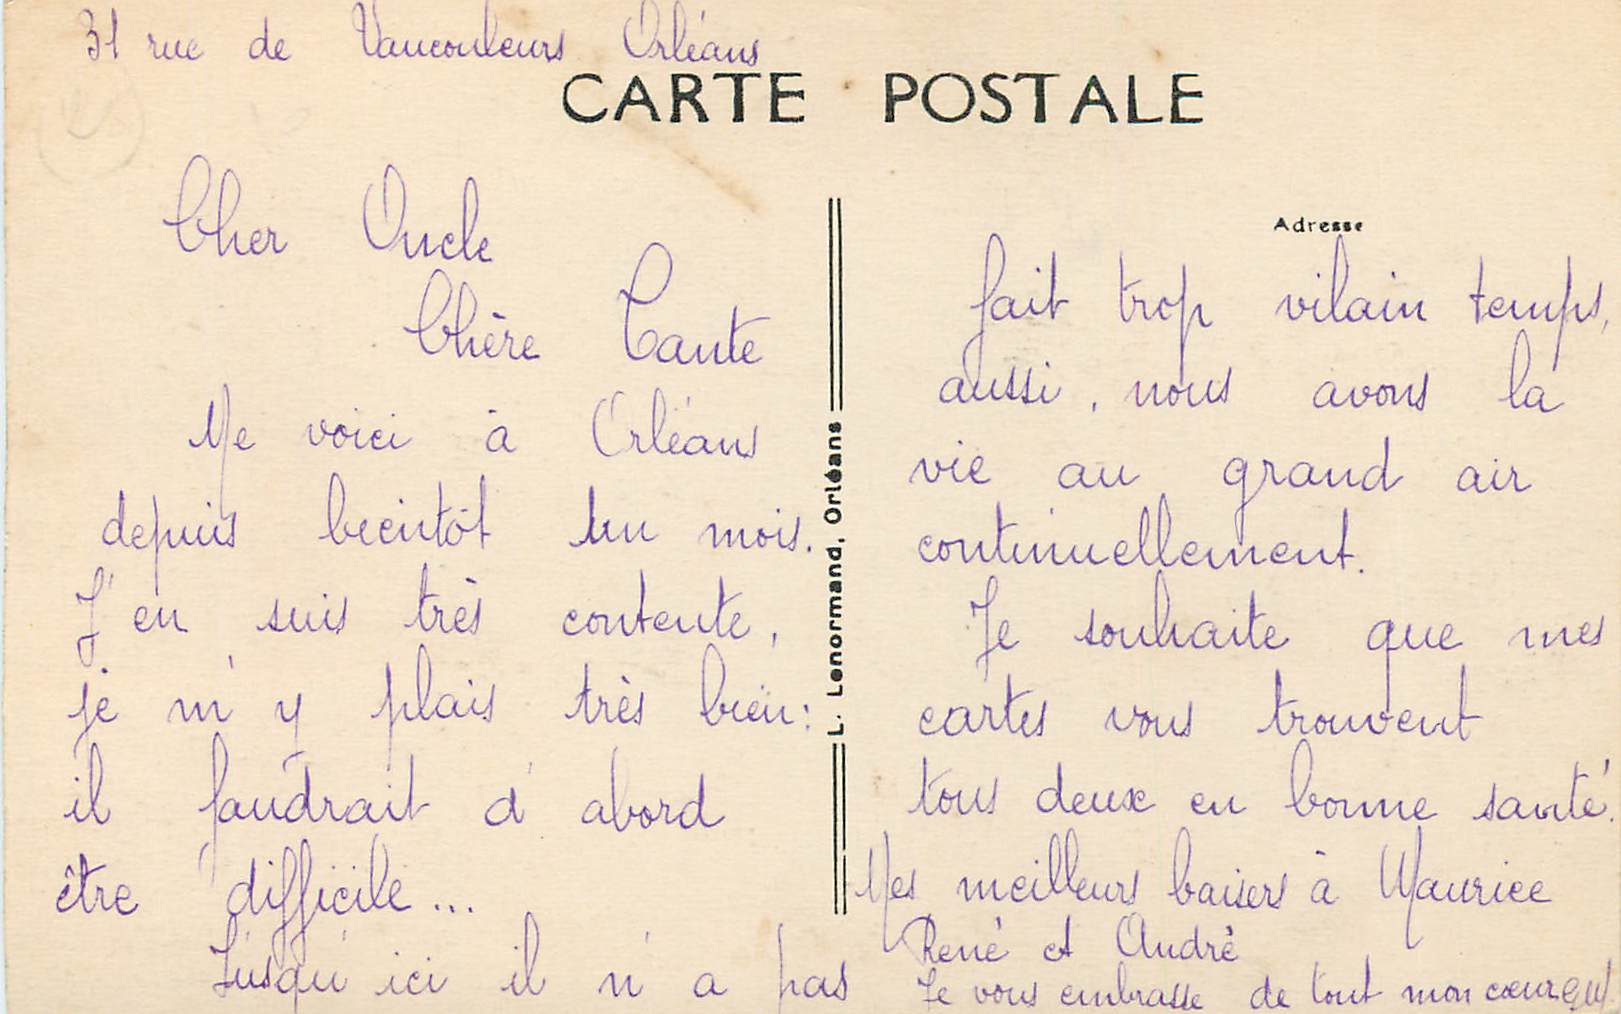 31 rue de Vaucouleurs Orléans
CARTE POSTALE
Cher Oncle
Chère Tante
Me voici à Orléans
depuis becintôt un mois.
J'en suis très contente,
je m'y plais très bien:
il faudrait d'abord
être difficile...
Jusqu'ici il n'a pas
L. Lenormand, Orléans
Adresse
fait trop vilain temps,
aussi, nous avons la
vie au grand air
continuellement.
Je souhaite que mes
cartes vous trouvent
tous deux en bonne santé.
Mes meilleurs baisers à Maurice
René et André
Je vous embrasse de tout mon cœur